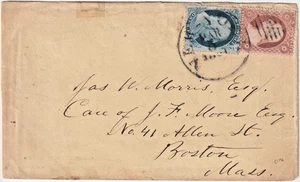 Jas W. Morris, Esq.
Care of J. F. Moore Esq.
No. 41 Allen St.
Boston
Mass.